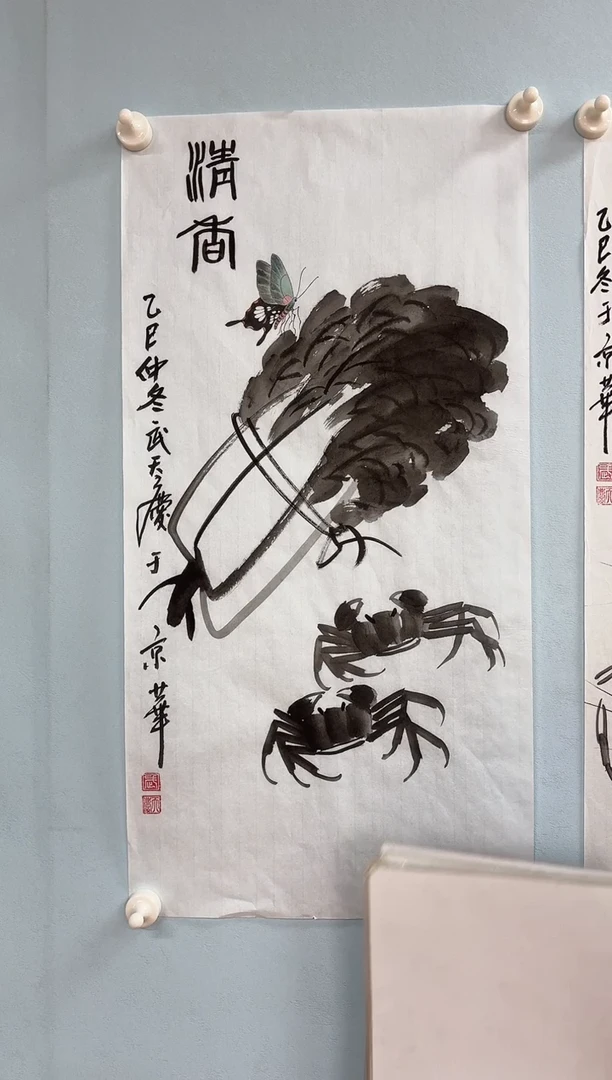 清香
乙巳仲冬武天慶于京華
乙巳冬于京華